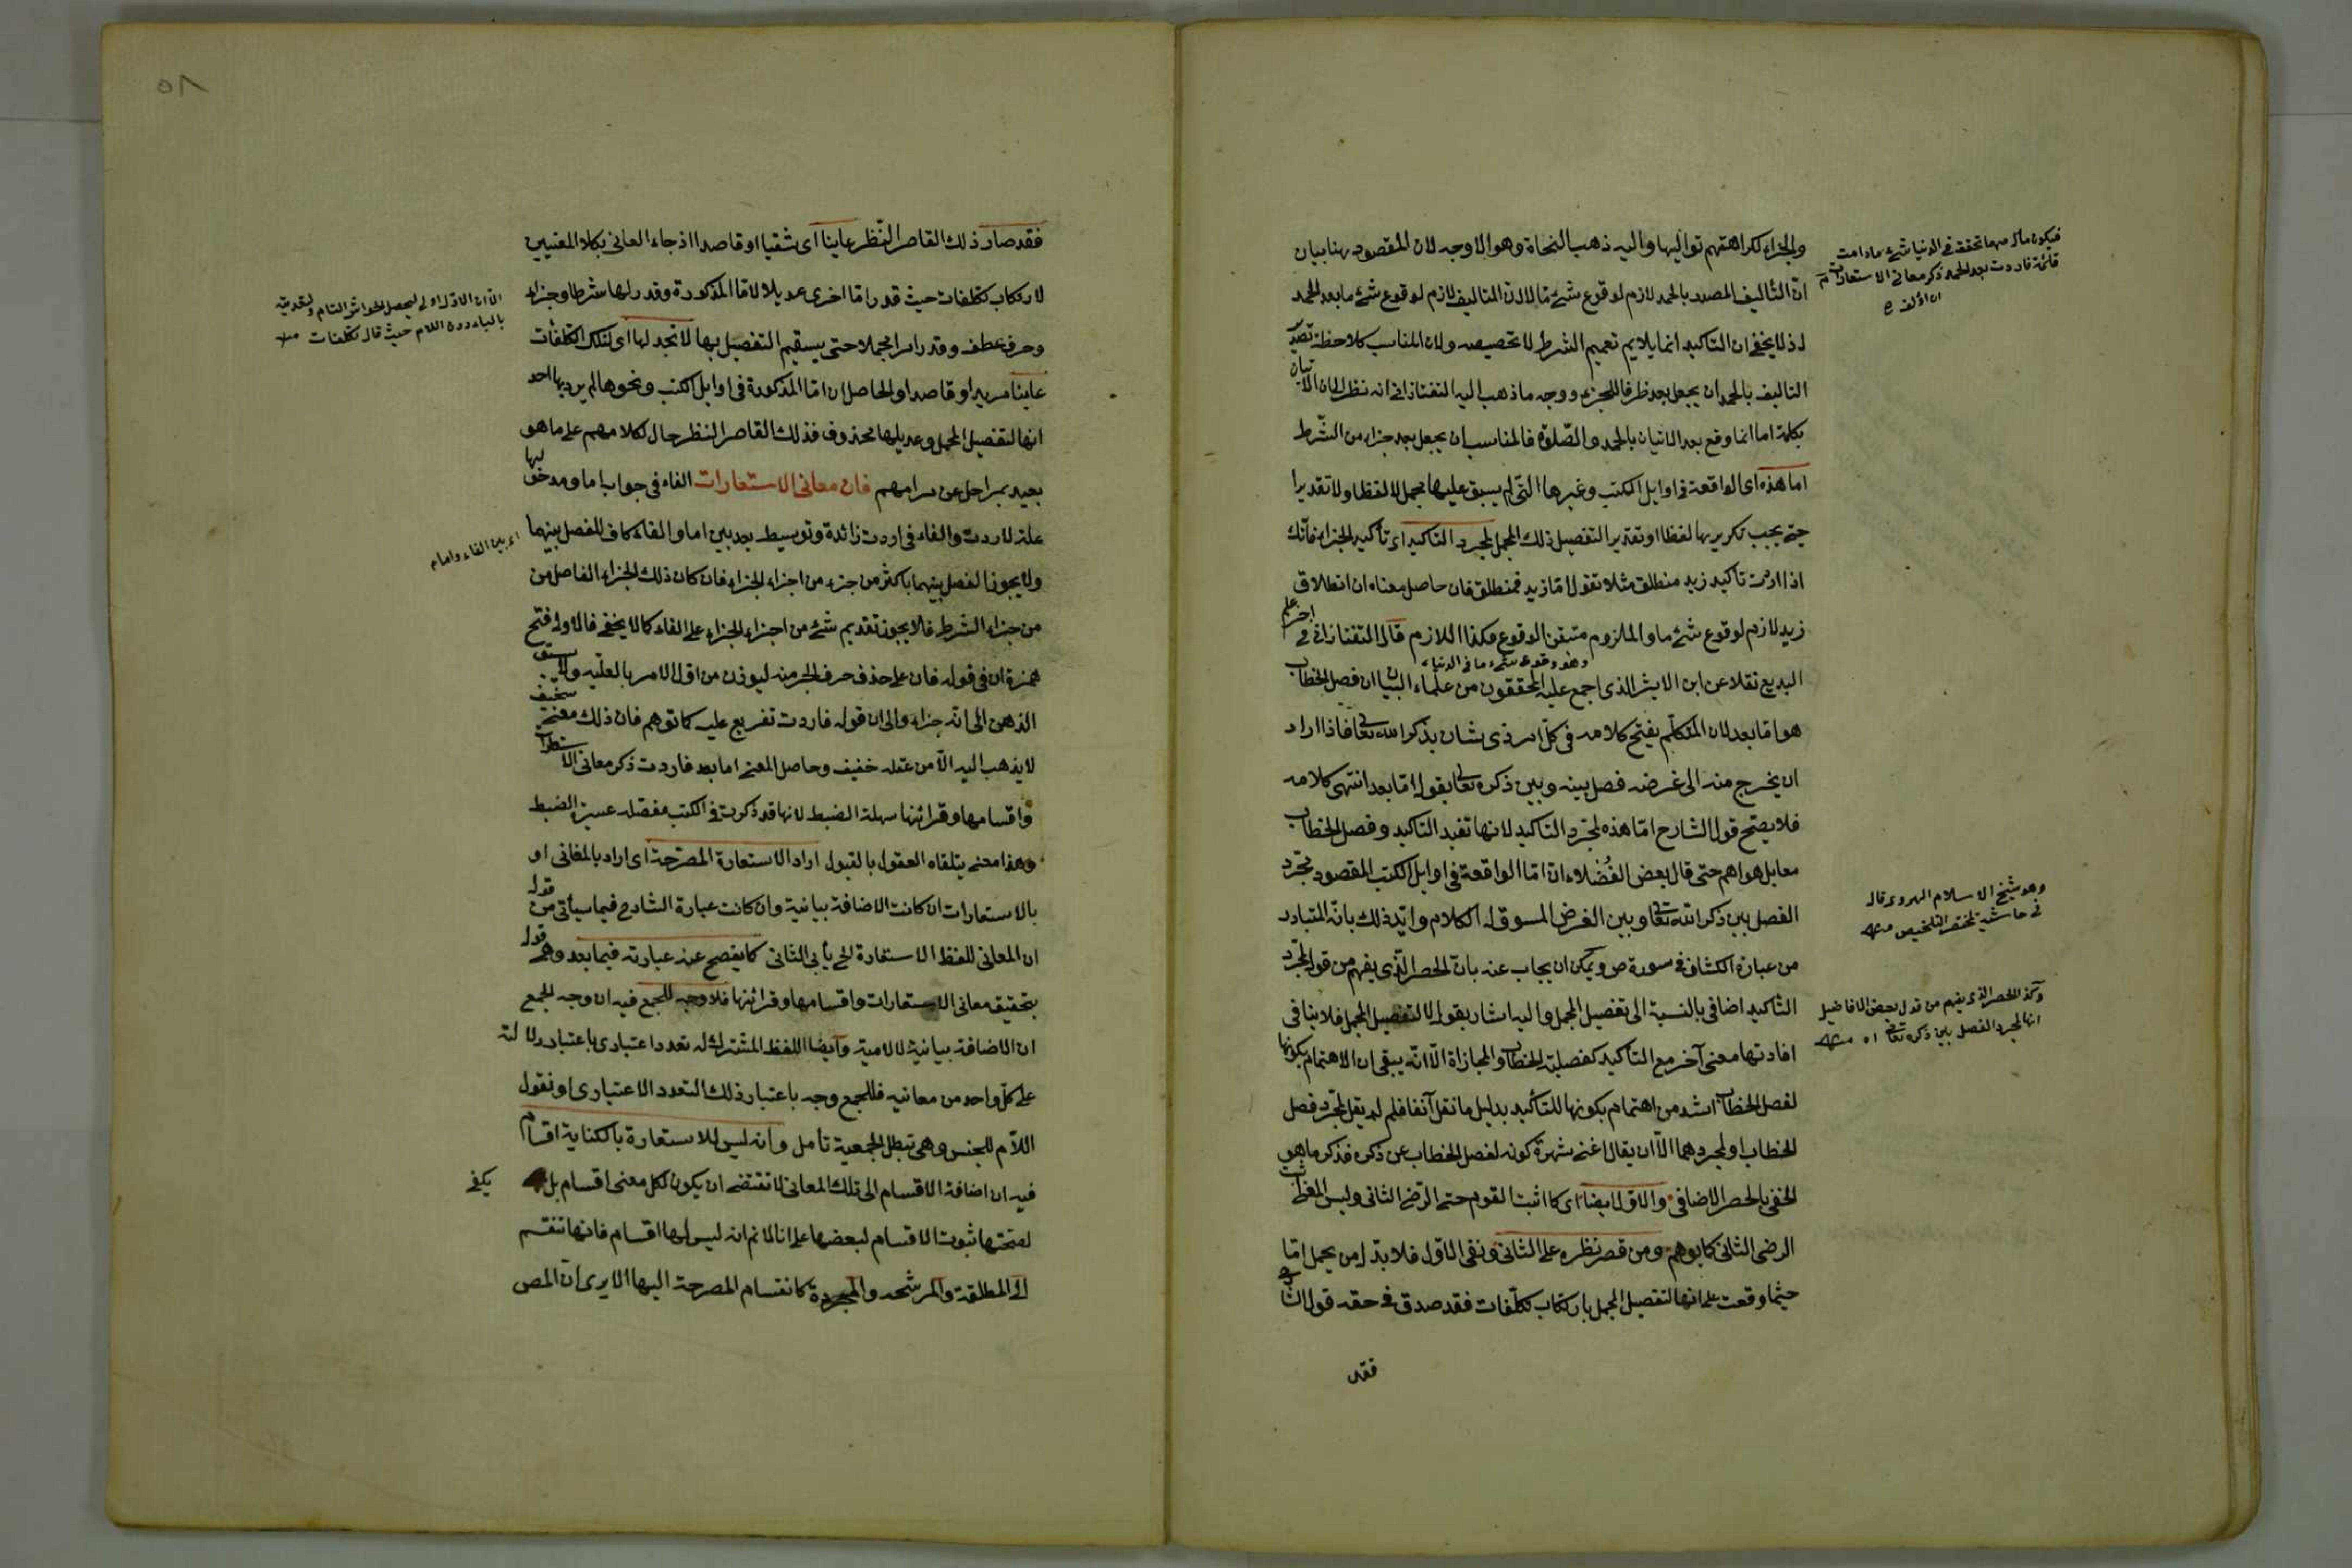 والجزاء لكراهتهم تواليها واليه ذهب النحاة وهو الاوجه لان المقصود ههنا بيان
ان التأليف المصدر بالحمد لازم لوقوع شئ ما لا لان التاليف لازم لوقوع شئ ما بعد الحمد
اذ لا يخفى ان التاكيد انما يلايم تعميم الشرط لا تخصيصه ولان المناسب كلاحظة تصدير
التاليف بالحمد ان يجعل بعد ظرفا للجزاء ووجه ما ذهب اليه التفتازانى انه نظر الى ان الاتيان
بكلمة اما انما وقع بعد الاتيان بالحمد والصلوة فالمناسب ان يجعل بعد جزاء من الشرط
اما هذه اى الواقعة فى اوايل الكتب وغيرها التى لم يسبق عليها مجمل لا لفظا ولا تقديرا
حتى يجب تكريرها لفظا او تقديرا لتفصيل ذلك المجمل لمجرد التاكيد اى تأكيد الجزاء فانك
اذا اردت تاكيد زيد منطلق مثلا تقول اما زيد فمنطلق فان حاصل معناه ان انطلاق
زيد لازم لوقوع شئ ما والملزوم متيقن الوقوع فكذا اللازم قال التفتازانى فى اخر علم
وهو وقوع شئ ما فى الدنيا
البديع نقلا عن ابن الاثير الذى اجمع عليه المحققون من علماء البيان ان فصل الخطاب
هو اما بعد لان المتكلم يفتح كلامه فى كل امر ذى شان بذكر الله تعالى فاذا اراد
ان يخرج منه الى غرضه فصل بينه وبين ذكره تعالى بقوله اما بعد انتهى كلامه
فلا يصح قول الشارح اما هذه لمجرد التاكيد لانها تفيد التاكيد وفصل الخطاب
معا بل هو اهم حتى قال بعض الفضلاء ان اما الواقعة فى اوايل الكتب المقصود مجرد
الفصل بين ذكر الله تعالى وبين الغرض المسوق له الكلام وايد ذلك بانه المتبادر
من عبارة الكشاف فى سورة ص ويمكن ان يجاب عنه بان الحصر الذى يفهم من قوله لمجرد
التاكيد اضافى بالنسبة الى تفصيل المجمل واليه اشار بقوله لا لتفصيل المجمل فلا ينافى
افادتها معنى آخر مع التاكيد كفصلية الخطاب والمجازاة الا انه يبقى ان الاهتمام بكونها
لفصل الخطاب اشد من اهتمام بكونها للتأكيد بدليل ما نقل آنفا فلم لم يقل لمجرد فصل
الخطاب او لمجردهما الا ان يقال اغنى شهرة كونه لفصل الخطاب عن ذكره فذكر ما هو
الخفى بالحصر الاضافى والاول ايضا اى كما اثبت القوم حتى الرضى الثانى وليس المغرب
الرضى الثانى كما يوهم ومن قصر نظره على الثانى ونفى الاول فلا بد له من يحمل اما
حيثما وقعت على انها لتفصيل المجمل بارتكاب تكلفات فقد صدق فى حقه قول الشارح
فقد
فيكون مآله مهما تحقق فى الدنيا شئ ما دامت
قائمة فاردت بعد الحمد ذكر معانى الاستعارات
وهو شيخ الاسلام الهروى قاله
فى حاشية المختصر التلخيص منه
وكذا الحصر الذى يفهم من قول بعض الافاضيل
انها لمجرد الفصل بين ذكره تعالى اه منه
٥٨
فقد صار ذلك القاصر النظر عاينا اى شقيا او قاصدا اذ جاء العانى بكلا المعنيين
لارتكاب تكلفات حيث قدر اما اخرى عديلا لاما المذكورة وقدر لها شرطا وجزاء
وحرف عطف وقدر امرا مجملا حتى يستقيم التفصيل بها لا تجد لها اى لتلك التكلفات
عاينا مريدا او قاصدا والحاصل ان اما المذكورة فى اوايل الكتب ونحوها لم يرد بها احد
انها لتفصيل المجمل وعديلها محذوف فذلك القاصر النظر حال لكلامهم على ما هو
بعيد بمراحل عن مرامهم فان معانى الاستعارات الفاء فى جواب اما ومدخولها
علة لاردت والفاء فى اردت زائدة وتوسيط بعد بين اما والفاء كاف للفصل بينهما
ولا يجوز الفصل بينهما باكثر من جزء من اجزاء الجزاء فان كان ذلك الجزاء الفاصل من
من جزاء الشرط فلا يجوز تقديم شئ من اجزاء الجزاء على الفاء كما لا يخفى فالاولى فتح
همزة ان فى قوله فان على حذف حرف الجر منه ليوذن من اول الامر بالعلية ولا يسبق
الذهن الى انه جزاء والى ان قوله فاردت تفريع عليه كما توهم فان ذلك معنى سخيف
لا يذهب اليه الا من عقله خفيف وحاصل المعنى اما بعد فاردت ذكر معانى الاستعارات
واقسامها وقرائنها سهلة الضبط لانها قد ذكرت فى الكتب مفصلة عسيرة الضبط
وهذا معنى يتلقاه العقول بالقبول اراد الاستعارة المصرحة اى اراد بالمعانى او
بالاستعارات ان كانت الاضافة بيانية وان كانت عبارة الشارح فيما سيأتى من قوله
ان المعانى للفظ الاستعارة الخ يأبى الثانى كما يفصح عنه عبارته فيما بعد وهى قوله
بتحقيق معانى الاستعارات واقسامها وقرائنها فلا وجه للجمع فيه ان وجه الجمع
ان الاضافة بيانية لا لامية وايضا اللفظ المشترك له تعدد اعتبارى باعتبار دلالته
على كل واحد من معانيه فللجمع وجه باعتبار ذلك التعدد الاعتبارى او نقول
اللام للجنس وهى تبطل الجمعية تأمل وانه ليس للاستعارة بالكناية اقسام
فيه ان اضافة الاقسام الى تلك المعانى لا تقتضى ان يكون لكل معنى اقسام بل يكفى
لصحتها ثبوت الاقسام لبعضها على انا لا نم انه ليس لها اقسام فانها تنقسم
الى المطلقة والمرشحة والمجردة كانقسام المصرحة اليها الا يرى ان المص
بالياء دون اللام حيث قال تكلفات منه
اى بين الفاء واما م